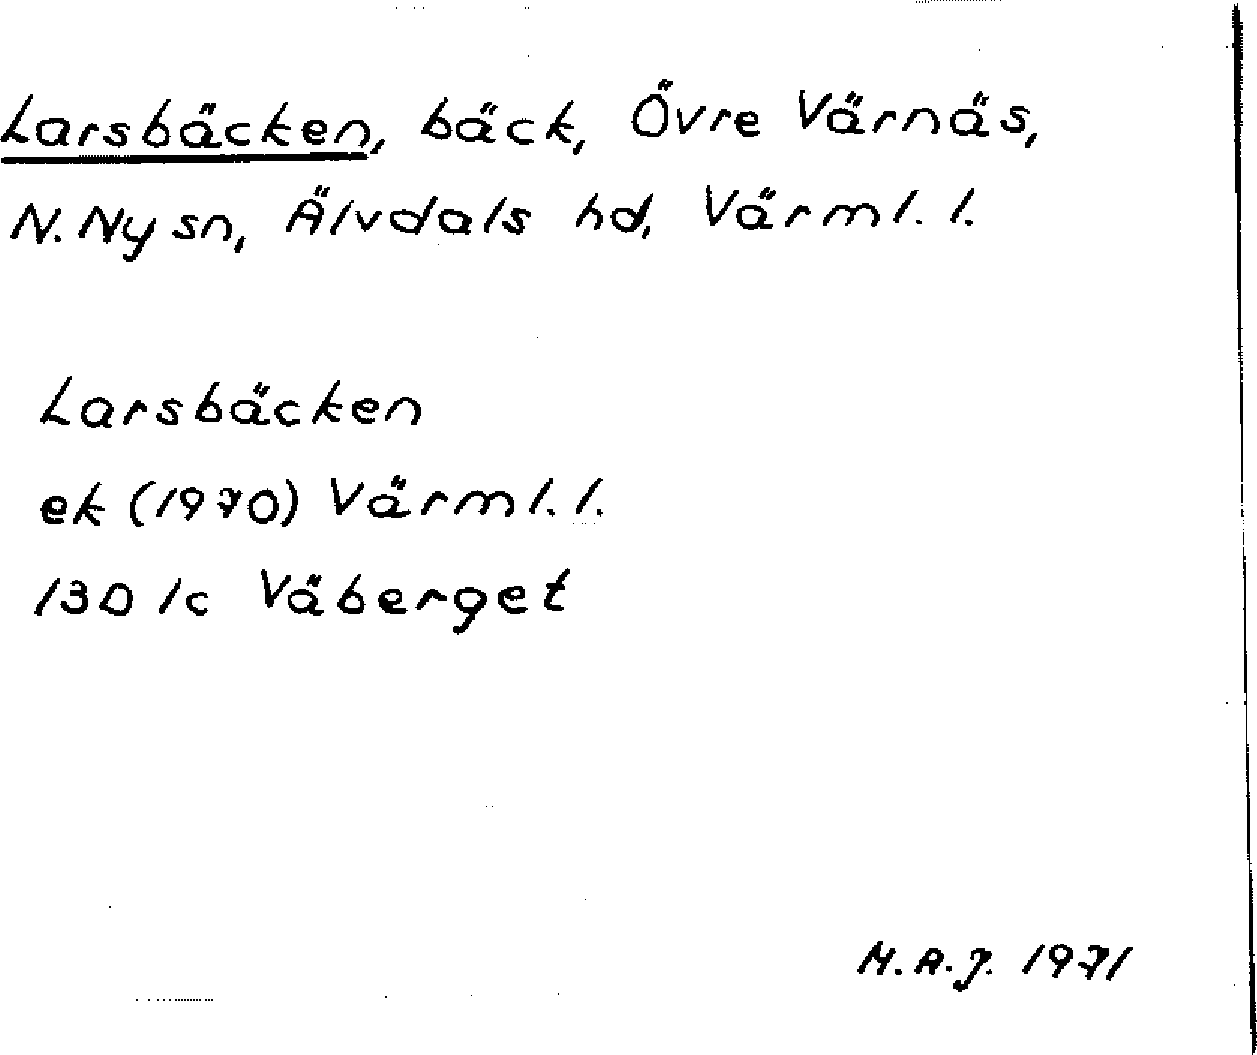 Larsbäcken, bäck, Övre Värnäs,
N. Ny sn, Älvdals hd, Värml. l.
Larsbäcken
ek (1970) Värml. l.
13D 1c Väberget
M.A.J. 1971